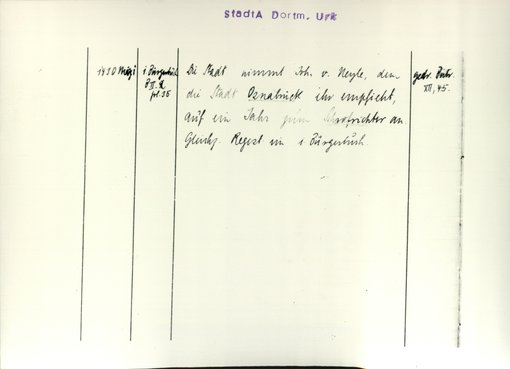 StadtA Dortm. Urk
1430
i Bürgerbuch
fol. 35
Die Stadt nimmt Joh. v. Neyle, dem
die Stadt Osnabrück ihr empfiehlt,
auf ein Jahr zum Scharfrichter an
Gleichz. Regest im i Bürgerbuch.
gedr. Beitr.
XII, 45.